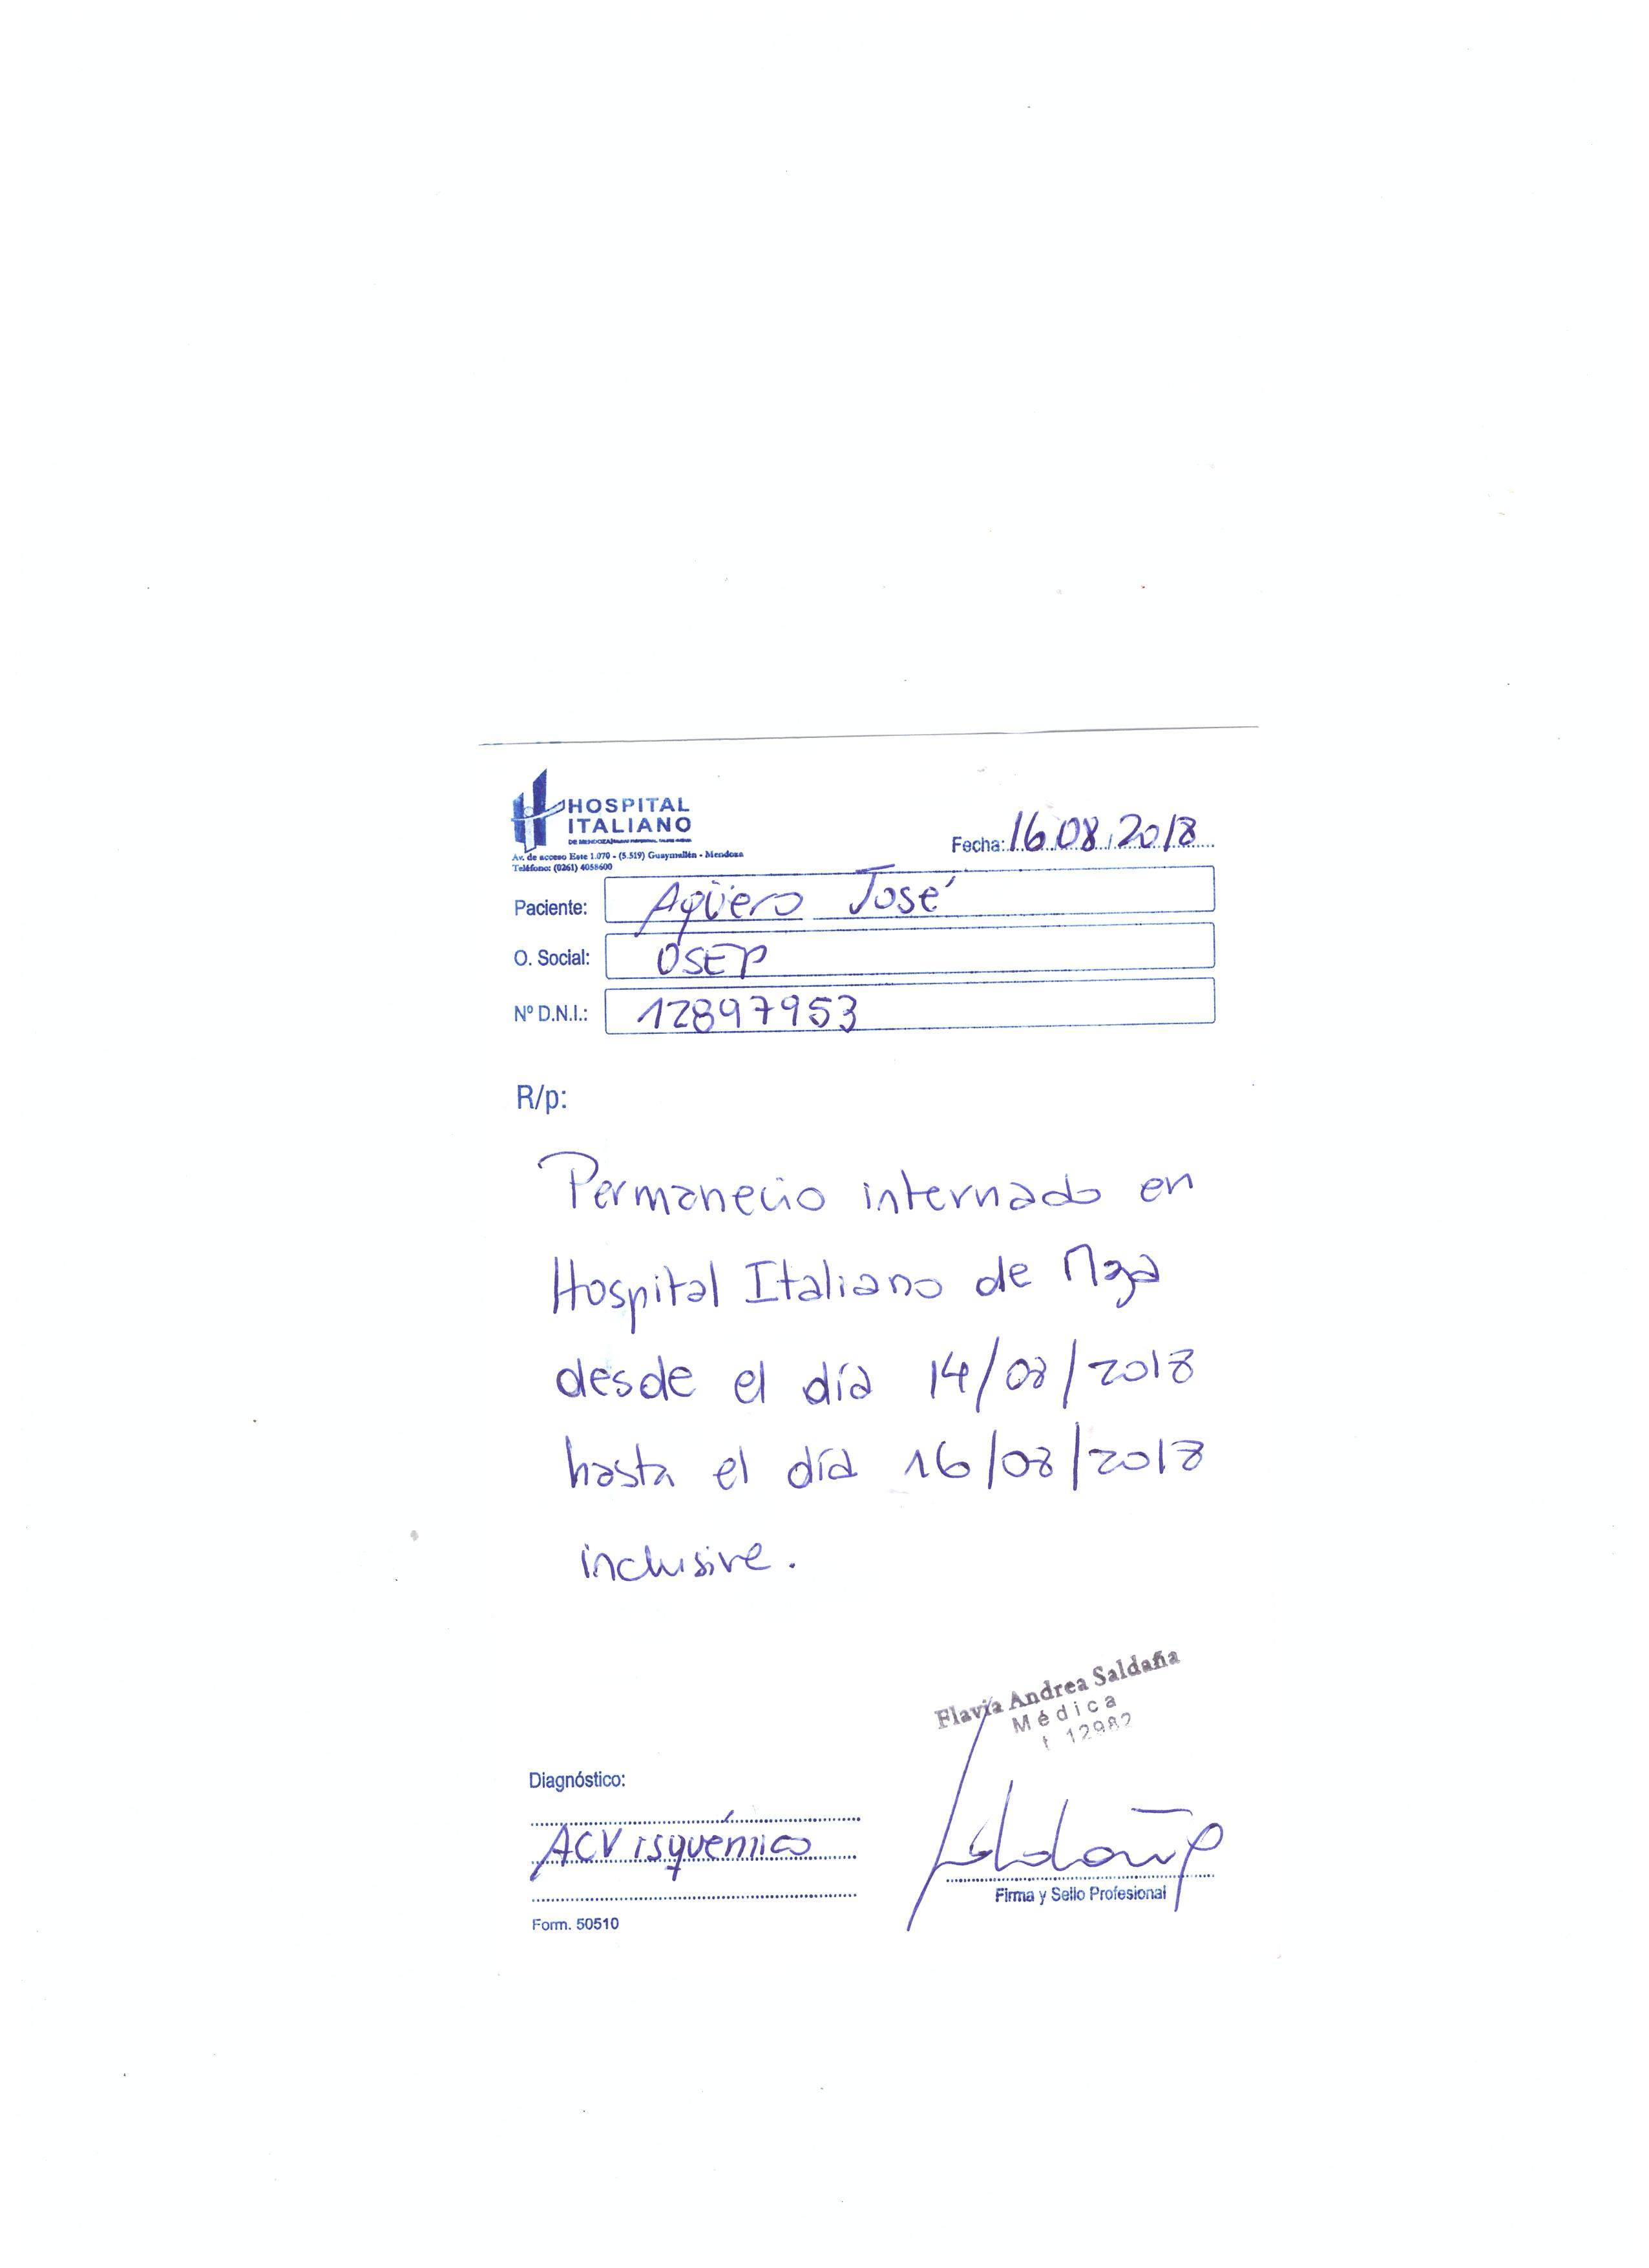 HOSPITAL
ITALIANO
Av. de acceso Este 1.070 - (5.519) Guaymallén - Mendoza
Teléfono: (0261) 4058600
Fecha: 16 08 2018
Paciente: Agüero José
O. Social: OSEP
Nº D.N.I.: 12897953
R/p:
Permanecio internado en
Hospital Italiano de Mza
desde el día 14/08/2018
hasta el día 16/08/2018
inclusive.
Flavia Andrea Saldaña
Médica
t 12982
Diagnóstico:
ACV isquémico
Firma y Sello Profesional
Form. 50510